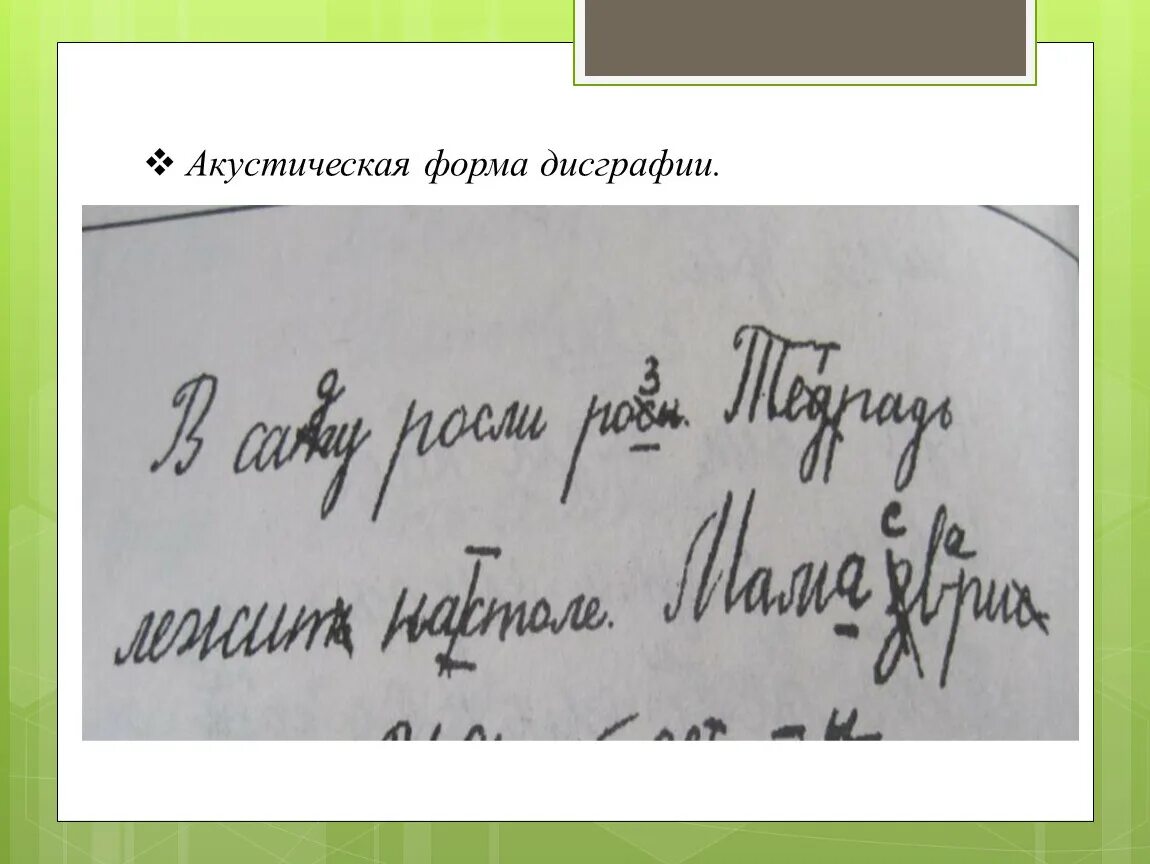 Акустическая форма дисграфии.
В саду росли розы. Тедрадь
лежит настоле. Мама